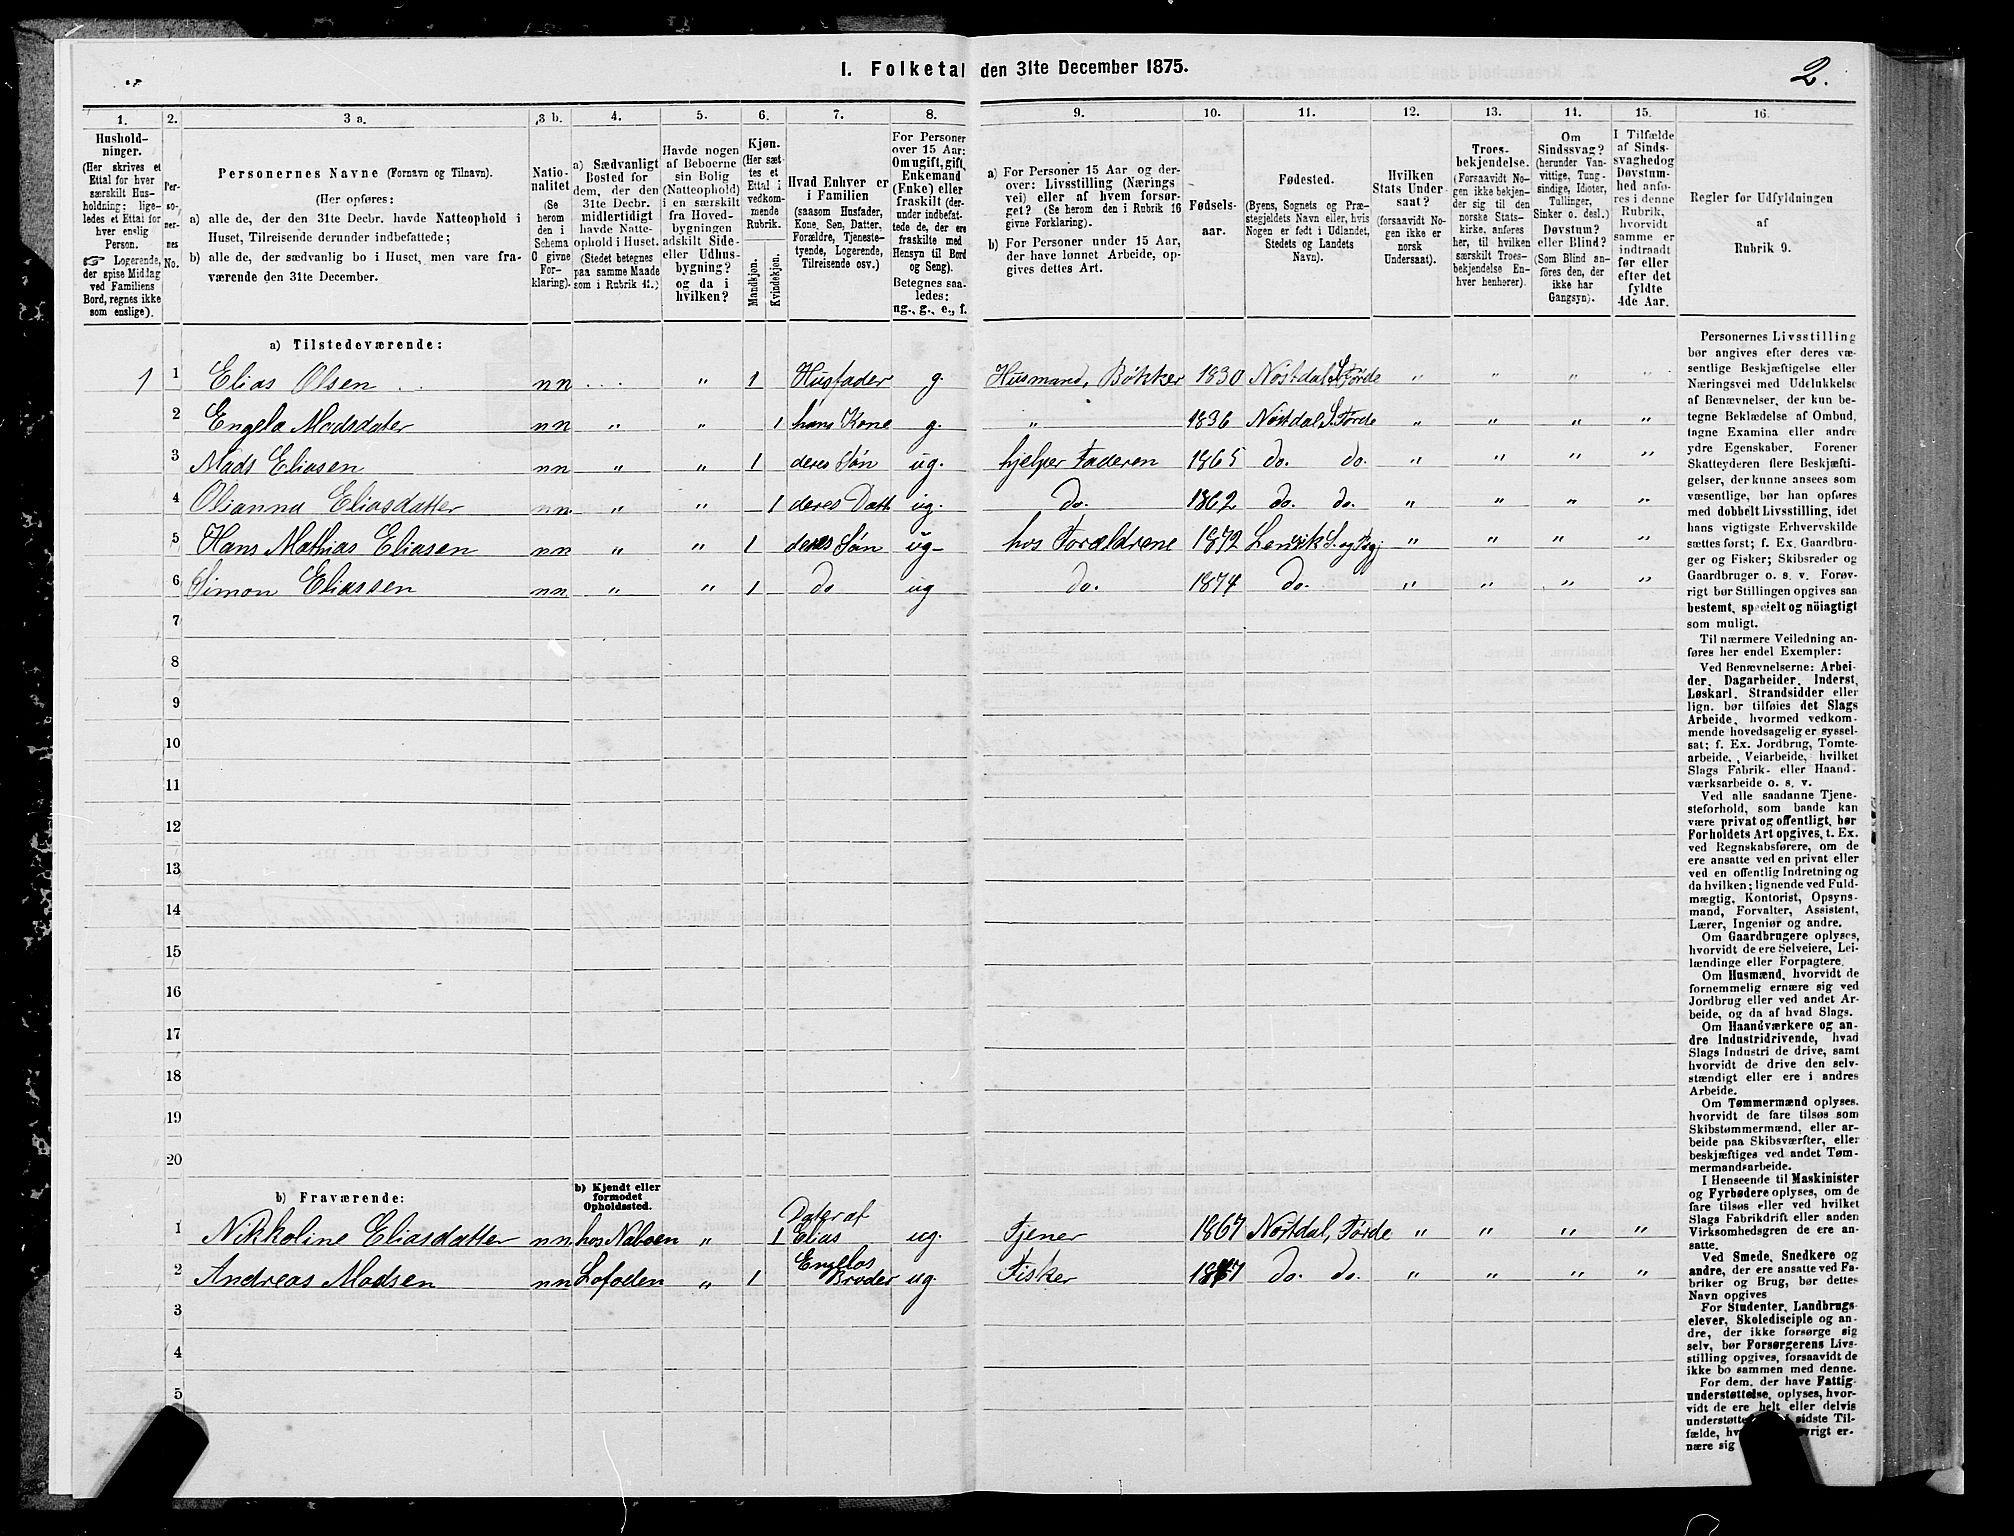 I. Folketal den 31te December 1875.
2.
1.
Hushold-
ninger.
(Her skrives et
Ettal for hver
særskilt Hus-
holdning: lige-
ledes et Ettal for
hver enslig
Person.
☞ Logerende,
der spise Middag
ved Familiens
Bord, regnes ikke
som enslige).
2.
Per-
so-
ner-
nes
No.
3 a.
Personernes Navne (Fornavn og Tilnavn).
(Her opføres:
a) alle de, der den 31te Decbr. havde Natteophold i
Huset, Tilreisende derunder indbefattede;
b) alle de, der sædvanlig bo i Huset, men vare fra-
værende den 31te December.
3 b.
Natio-
nalitet
(Se
herom
den i
Schema
O givne
For-
klaring).
4.
a) Sædvanligt
Bosted for
dem, der den
31te Decbr.
midlertidigt
havde Natte-
ophold i Huset.
(Stedet betegnes
paa samme Maade
som i Rubrik 11.)
5.
Havde nogen
af Beboerne
sin Bolig
(Natteophold)
i en særskilt
fra Hoved-
bygningen
adskilt Side-
eller Udhus-
bygning?
og da i
hvilken?
6.
Kjøn.
(Her sæt-
tes et
Ettal i
vedkom-
mende
Rubrik.
Mandkjøn.
Kvindekjøn.
7.
Hvad Enhver er
i Familien
(saasom Husfader,
Kone, Søn, Datter,
Forældre, Tjeneste-
tyende, Logerende,
Tilreisende osv.)
8.
For Personer
over 15 Aar:
Om ugift, gift,
Enkemand
(Enke) eller
fraskilt (der-
under indbefat-
tede de, der ere
fraskilte med
Hensyn til Bord
og Seng).
Betegnes saa-
ledes:
ug., g., e., f.
9.
a) For Personer 15 Aar og der-
over: Livsstilling (Nærings-
vei) eller af hvem forsør-
get? (Se herom den i Rubrik 16
givne Forklaring).
b) For Personer under 15 Aar,
der have lønnet Arbeide, op-
gives dettes Art.
10.
Fødsels-
aar.
11.
Fødested.
(Byens, Sognets og Præ-
stegjeldets Navn eller, hvis
Nogen er født i Udlandet,
Stedets og Landets
Navn).
12.
Hvilken
Stats Under-
saat?
(forsaavidt No-
gen ikke er
norsk
Undersaat).
13.
Troes-
bekjendelse.
(Forsaavidt No-
gen ikke bekjen-
der sig til den
norske Stats-
kirke, anføres
her, til hvilken
særskilt Troes-
bekjendelse En-
hver henhører).
14.
Om
Sindssvag?
(herunder Van-
vittige, Tung-
sindige, Idioter,
Tullinger,
Sinker o. desl.)
Døvstum?
eller Blind?
(Som Blind an-
føres den, der
ikke har
Gangsyn).
15.
I Tilfælde
af Sinds-
svaghed og
Døvstum-
hed anfø-
res i denne
Rubrik,
hvorvidt
samme er
indtraadt
før eller
efter det
fyldte
4de Aar.
16.
Regler for Udfyldningen
af
Rubrik 9.
a) Tilstedeværende:
1 1 Elias Olsen nn " 1 Husfader g. Husmand, Bökker 1830 Nöstdal S. Førde " " " "
2 Engela Madsdater nn " " 1 hans Kone g. " 1836 Nöstdal S. Førde " " " "
3 Mads Eliasen nn " " 1 deres Søn ug. hjelper Faderen 1865 do. do. " " " "
4 Olianna Eliasdatter nn " " 1 deres Datt. ug. do. 1862 do. do. " " " "
5 Hans Mathias Eliasen nn " " 1 deres Søn ug hos Forældrene 1872 " " " "
6 Simon Eliassen nn " " 1 do ug do. 1874 do. " " " "
7
8
9
10
11
12
13
14
15
16
17
18
19
20
b) Fraværende:
b) Kjendt eller
formodet
Opholdssted.
1 Nikkoline Eliasdatter nn. hos Naboen " 1 Dater af Elias ug. Tjener 1867 Nöstdal, Førde " " " "
2 Andreas Madsen nn Lofoden " 1 Engelas Broder ug. Fisker do. do. " " " "
3
4
5
Personernes Livsstilling
bør angives efter deres væ-
sentlige Beskjæftigelse eller
Næringsvei med Udelukkelse
af Benævnelser, der kun be-
tegne Beklædelse af Ombud,
tagne Examina eller andre
ydre Egenskaber. Forener
Skatteyderen flere Beskjæfti-
gelser, der kunne ansees som
væsentlige, bør han opføres
med dobbelt Livsstilling, idet
hans vigtigste Erhvervskilde
sættes først; f. Ex. Gaardbru-
ger og Fisker; Skibsreder og
Gaardbruger o. s. v. Forøv-
rigt bør Stillingen opgives saa
bestemt, specielt og nöiagtigt
som muligt.
Til nærmere Veiledning an-
føres her endel Exempler:
Ved Benævnelserne: Arbei-
der, Dagarbeider, Inderst,
Løskarl, Strandsidder eller
lign. bør tilføies det Slags
Arbeide, hvormed vedkom-
mende hovedsagelig er syssel-
sat; f. Ex. Jordbrug, Tomte-
arbeide, Veiarbeide, hvilket
Slags Fabrik- eller Haand-
værksarbeide o. s. v.
Ved alle saadanne Tjene-
steforhold, som baade kan
være privat og offentligt, bør
Forholdets Art opgives, t. Ex.
ved Regnskabsførere, om de
ere ansatte ved en privat eller
ved en offentlig Indretning og
da hvilken; lignende ved Fuld-
mægtig, Kontorist, Opsyns-
mand, Forvalter, Assistent,
Lærer, Ingeniør og andre.
Om Gaardbrugere oplyses,
hvorvidt de ere Selveiere, Lei-
lændinge eller Forpagtere.
Om Husmænd, hvorvidt de
fornemmelig ernære sig ved
Jordbrug eller ved andet Ar-
beide, og da af hvad Slags.
Om Haandværkere og an-
dre Industridrivende, hvad
Slags Industri de drive, samt
hvorvidt de drive den selv-
stændigt eller ere i andres
Arbeide.
Om Tømmermænd oplyses,
hvorvidt de fare tilsøs som
Skibstømmermænd, eller ar-
beide paa Skibsværfter, eller
beskjæftiges ved andet Tøm-
mermandsarbeide.
I Henseende til Maskinister
og Fyrbødere oplyses, om de
fare tilsøs eller ved hvilket
Slags Fabrikdrift eller anden
Virksomhedsgren de ere an-
satte.
Ved Smede, Snedkere og
andre, der ere ansatte ved Fa-
briker og Brug, bør dettes
Navn opgives
For Studenter, Landbrugs-
elever, Skoledisciple og an-
dre, der ikke forsørge sig
selv, bør Forsørgerens Livs-
stilling opgives, forsaavidt de
ikke bo sammen med denne.
For dem, der have Fattig-
understøttelse, oplyses, hvor-
vidt de ere helt eller delvis
understøttede sidste Til-
fælde, ernære sig